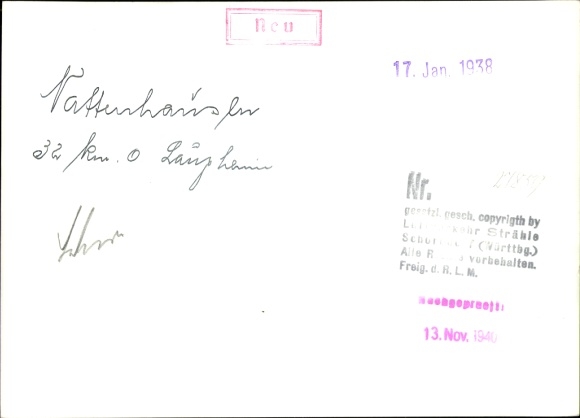 Neu
17. Jan. 1938
Nattenhausen
32 km. O Laupheim
Nr.
gesetzl. gesch. copyrigth by
Strähle
(Württbg.)
Alle vorbehalten.
Freig. d. R. L. M.
Nachgeprüft:
13. Nov. 1940